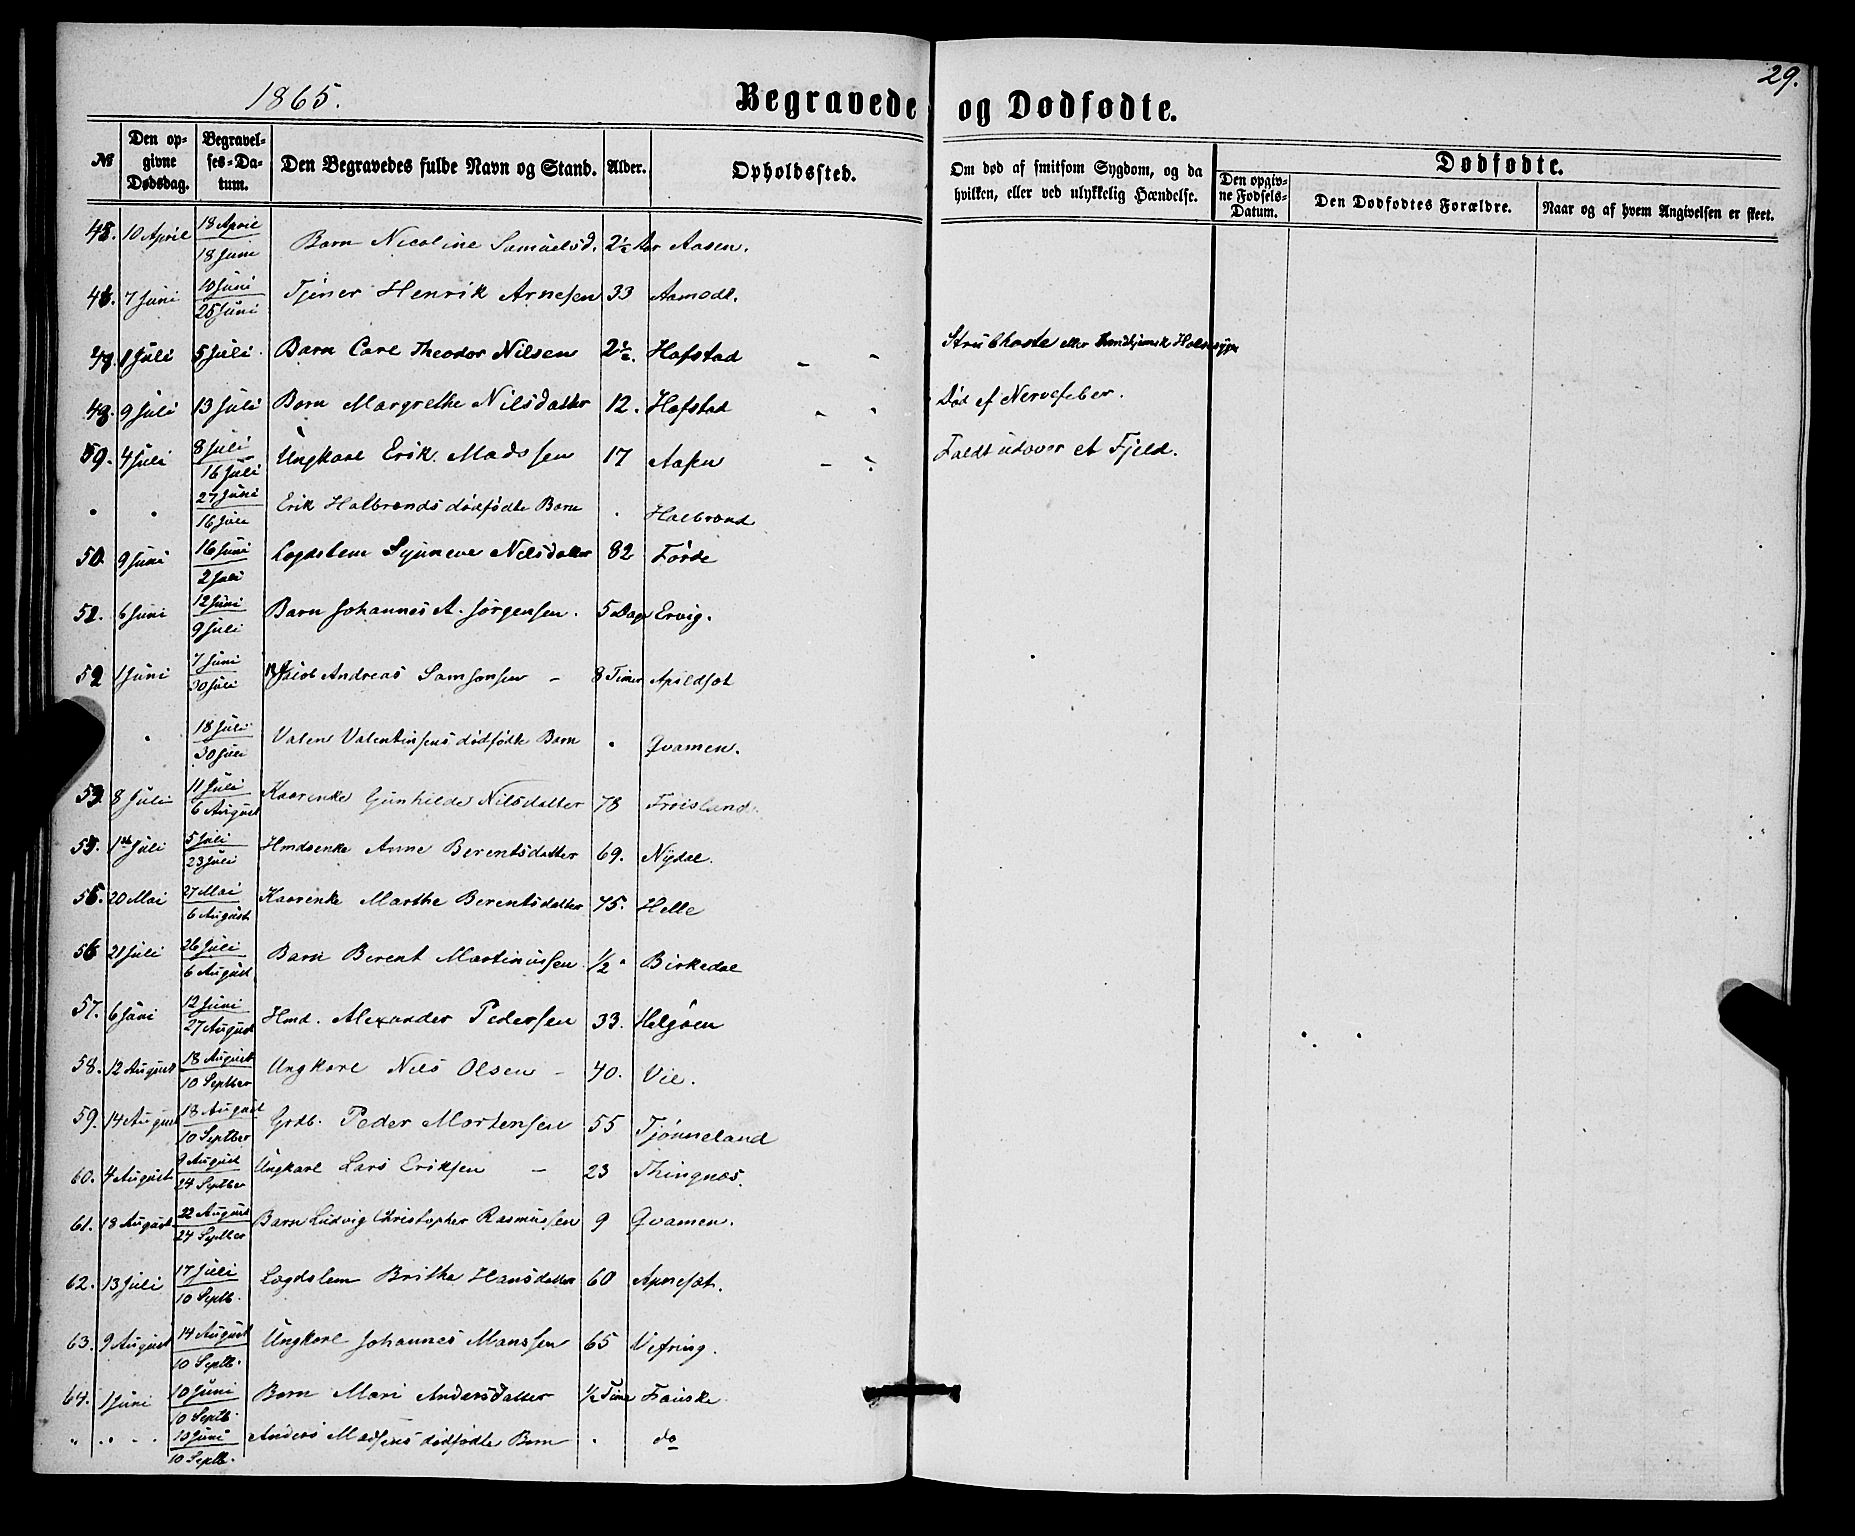 29.
1865.
Begravede og Dødfødte.
№ Den opgivne Dødsdag. Begravelses-Datum. Den Begravedes fulde Navn og Stand. Alder. Opholdssted. Om død af smitsom Sygdom, og da hvilken, eller ved ulykkelig Hændelse. Dødfødte. Den opgivne Fødsels-Datum. Den Dødfødtes Forældre. Naar og af hvem Angivelsen er skeet.
10 April 18 April 18 Juni Barn Nicoline Samuelsd. 2½ Aar Aasen.
7 Juni 10 Juni 25 Juni Tjener Henrik Arnesen 33 Aamodt.
1 Juli 5 Juli Barn Carl Theodor Nilsen 2½. Hafstad - - Strubhoste eller
9 Juli 13 Juli Barn Margrethe Nilsdatter 12. Hafstad - - Død af Nervefeber.
4 Juli 8 Juli 16 Juli Ungkarl Erik Madssen 17 Aasen - - Faldt udover et Fjeld.
" " 27 Juni 16 Juli Erik Halbrends dødfødte Barn . Halbrend
50. 9 Juni 16 Juni 2 Juli Lægdslem Synneve Nilsdatter 82 Førde
51. 6 Juni 12 Juni 9 Juli Barn Johannes A. Jørgensen. 5 Dage Ervig.
52 1 Juni 7 Juni 30 Juli Jacob Andreas Samsonsen - 8 Timer Apildsæt
" 18 Juli 30 Juli Valen Valentinsens dødfødte Barn " Qvamen.
53. 8 Juli 11 Juli 6 August Kaarenke Gunhilde Nilsdatter 78 Frøisland.
54. 1ste Juli 5 Juli 23 Juli Hmdsenke Anne Berentsdatter 69. Nydal.
55. 20 Mai 27 Mai 6 August Kaarenke Marthe Berentsdatter 75. Helle
56 21 Juli 26 Juli 6 August Barn Berent Martinussen ½ " Birkedal
57. 6 Juni 12 Juni 27 August Hmd. Alexander Pedersen 33. Helgøen
58. 12 August 18 August 10 Septber Ungkarl Nils Olsen - 40. Vie.
59. 14 August 18 August 10 Septber Grdb. Peder Mortensen 55 Tjønneland
60. 4 August 9 August 24 Septber Ungkarl Lars Eriksen - 23 Thingnæs.
61. 18 August 22 August 24 Septber Barn Ludvig Christopher Rasmussen 9 Qvamen.
62. 13 Juli 17 Juli 10 Septb. Lægdslem Brithe Hansdatter 60
63. 9 August 14 August 10 Septb. Ungkarl Johannes Manssen 65 Vefring.
64. 1 Juni 10 Juni 10 Septb. Barn Mari Andersdatter ½ Time Fauske
" " " " 10 Juni 10 Septb. Anders Madsens dødfødte Barn . do